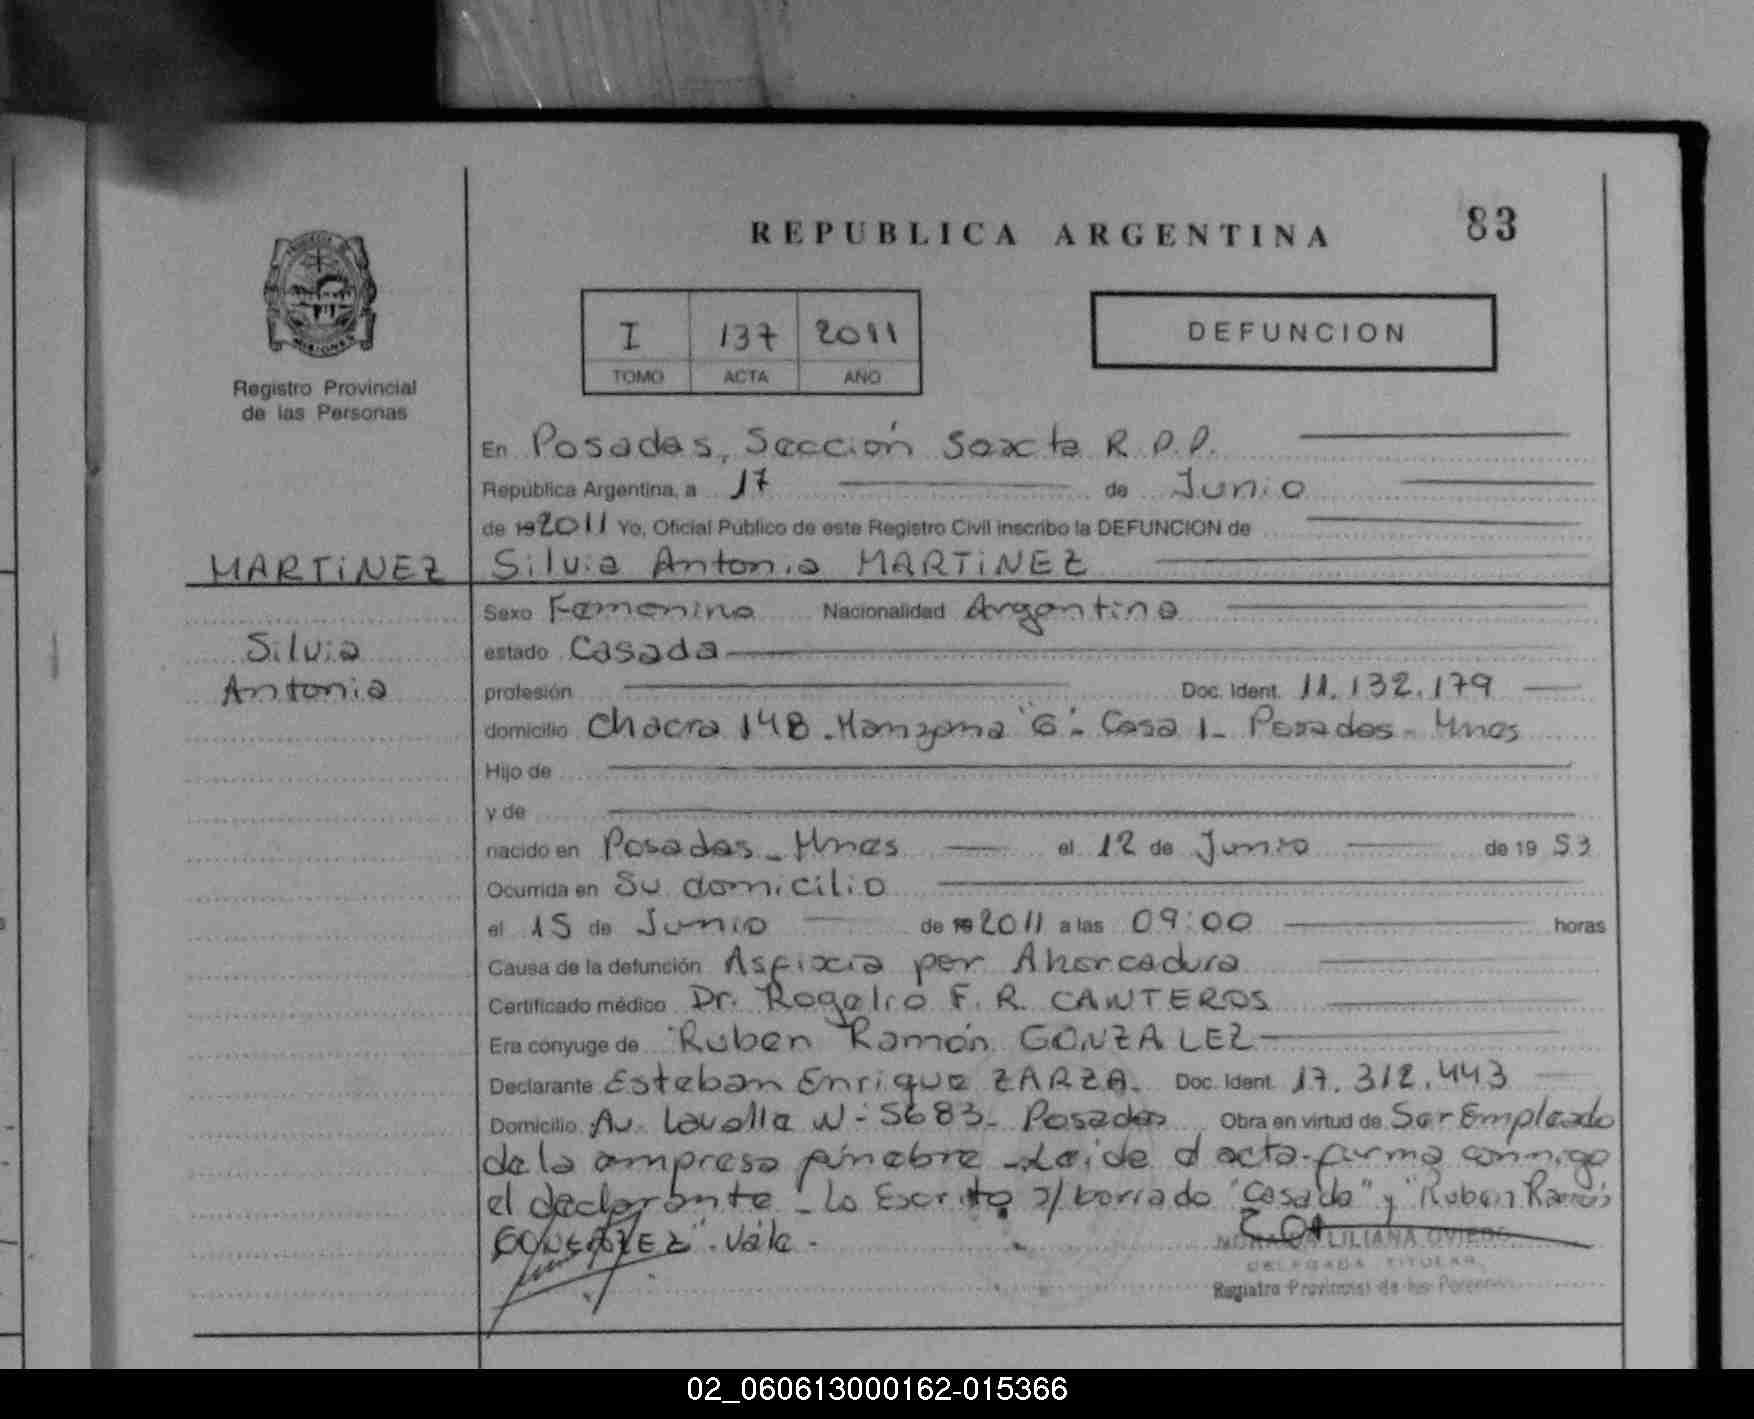 REPUBLICA ARGENTINA
83
MISIONES
Registro Provincial
de las Personas
I 137 2011
TOMO ACTA AÑO
DEFUNCION
En Posadas, Sección Sexta R.P.P.
República Argentina, a 17 de Junio
de 19 2011 Yo, Oficial Público de este Registro Civil inscribo la DEFUNCION de
MARTiNEZ Silvia Antonia MARTiNEZ
Sexo Femenino Nacionalidad Argentina
Silvia estado Casada
Antonia profesión Doc. Ident. 11.132.179
domicilio Chacra 148 - Manzana "G" - Casa 1 - Posadas - Mnes
Hijo de
y de
nacido en Posadas - Mnes el 12 de Junio de 19 53
Ocurrida en Su domicilio
el 15 de Junio de 19 2011 a las 09:00 horas
Causa de la defunción Asfixia por Ahorcadura
Certificado médico Dr. Rogelio F. R. CANTEROS
Era cónyuge de Ruben Ramón GONZALEZ
Declarante Esteban Enrique ZARZA. Doc. Ident. 17.312.443
Domicilio Av. Lavalle N- 5683 - Posadas Obra en virtud de Ser Empleado
de la empresa fúnebre - Leída el acta firma conmigo
el declarante - Lo Escrito s/ borrado "Casada" y "Ruben Ramón
GONZALEZ". Vale -
LILIANA OVIEDO
DELEGADA TITULAR
Registro Provincial de las Personas
02_060613000162-015366